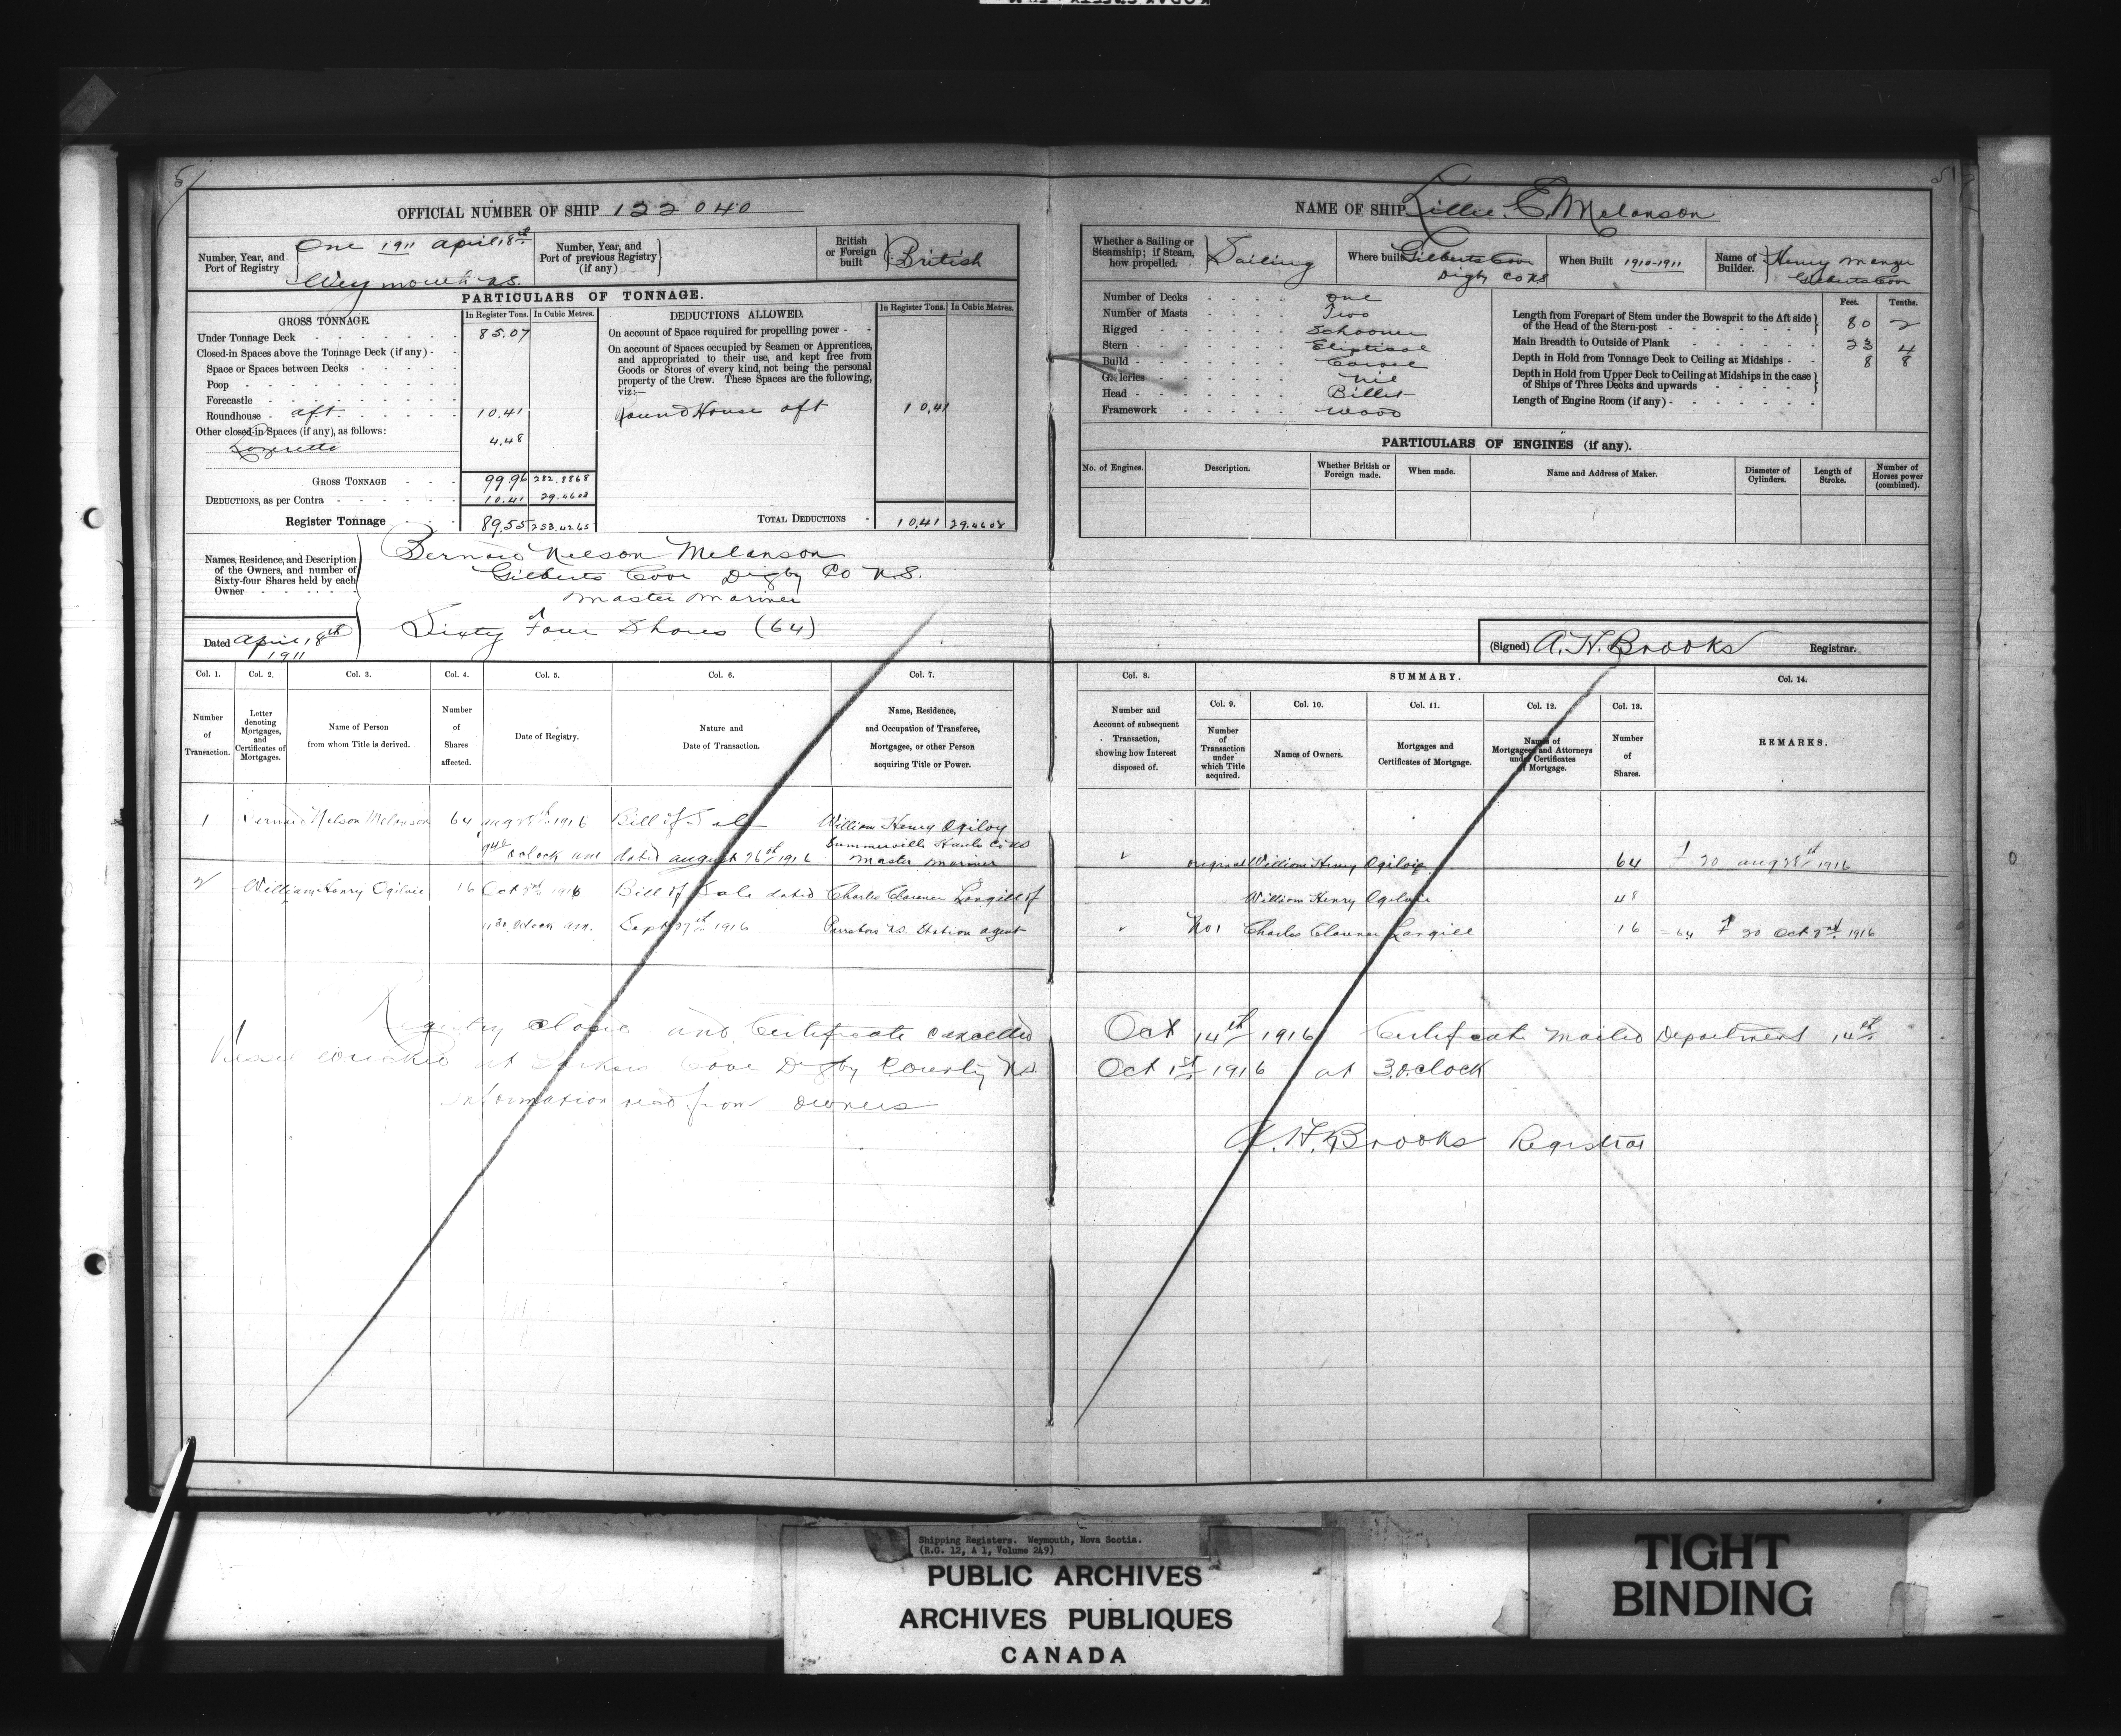 51
OFFICIAL NUMBER OF SHIP 122040
Number, Year, and Port of Registry
One 1911 April 18th
Weymouth N.S.
Number, Year, and Port of previous Registry (if any)
British or Foreign built
British
PARTICULARS OF TONNAGE.
GROSS TONNAGE.
In Register Tons. In Cubic Metres.
Under Tonnage Deck 85.07
Closed-in Spaces above the Tonnage Deck (if any)
Space or Spaces between Decks
Poop
Forecastle
Roundhouse aft 10.41
Other closed-in Spaces (if any), as follows:
Lazerette 4.48
GROSS TONNAGE 99.96 282.8868
DEDUCTIONS, as per Contra 10.41 29.4603
Register Tonnage 89.55 253.4265
DEDUCTIONS ALLOWED.
In Register Tons. In Cubic Metres.
On account of Space required for propelling power
On account of Spaces occupied by Seamen or Apprentices, and appropriated to their use, and kept free from Goods or Stores of every kind, not being the personal property of the Crew. These Spaces are the following, viz:—
Round House aft 10.41
TOTAL DEDUCTIONS 10.41 29.4603
Names, Residence, and Description of the Owners, and number of Sixty-four Shares held by each Owner
Bernard Nelson Melanson
Gilberts Cove Digby Co N.S.
Master Mariner
Sixty Four Shares (64)
Dated April 18th 1911
Col. 1. Col. 2. Col. 3. Col. 4. Col. 5. Col. 6. Col. 7.
Number of Transaction.
Letter denoting Mortgages, and Certificates of Mortgages.
Name of Person from whom Title is derived.
Number of Shares affected.
Date of Registry.
Nature and Date of Transaction.
Name, Residence, and Occupation of Transferee, Mortgagee, or other Person acquiring Title or Power.
1 Bernard Nelson Melanson 64 Aug 28th 1916 Bill of Sale William Henry Ogilvy
Summerville Hants Co NS
oclock am dated august 26th 1916 Master Mariner
2 William Henry Ogilvie 16 Oct 2nd 1916 Bill of Sale dated Charles Clarence Langill of
oclock am. Sept 27th 1916 Parrsboro NS. Station agent
Registry closed and Certificate cancelled
Vessel wrecked at Cove Digby County NS.
Information recd from owners
51
NAME OF SHIP Lillie E. Melanson
Whether a Sailing or Steamship; if Steam, how propelled.
Sailing
Where built
Gilberts Cove
Digby Co NS
When Built 1910-1911
Name of Builder.
Henry
Gilberts Cove
Number of Decks one
Number of Masts Two
Rigged Schooner
Stern Eliptical
Build Carvel
Galleries nil
Head Billet
Framework wood
Feet. Tenths.
Length from Forepart of Stem under the Bowsprit to the Aft side of the Head of the Stern-post 80 2
Main Breadth to Outside of Plank 23 4
Depth in Hold from Tonnage Deck to Ceiling at Midships 8 8
Depth in Hold from Upper Deck to Ceiling at Midships in the case of Ships of Three Decks and upwards
Length of Engine Room (if any)
PARTICULARS OF ENGINES (if any).
No. of Engines.
Description.
Whether British or Foreign made.
When made.
Name and Address of Maker.
Diameter of Cylinders.
Length of Stroke.
Number of Horses power (combined).
(Signed) A. H. Brooks Registrar.
Col. 8.
SUMMARY.
Col. 14.
Number and Account of subsequent Transaction, showing how Interest disposed of.
Col. 9. Col. 10. Col. 11. Col. 12. Col. 13.
Number of Transaction under which Title acquired.
Names of Owners.
Mortgages and Certificates of Mortgage.
Names of Mortgagees and Attorneys under Certificates of Mortgage.
Number of Shares.
REMARKS.
original William Henry Ogilvie 64 F 20 aug 28th 1916
William Henry Ogilvie 48
No 1 Charles Clarence Langill 16 = 64 F 20 Oct 2nd 1916
Oct 14th 1916 Certificate Mailed Department 14th
Oct 1st 1916 at 3.oclock
A. H. Brooks Registrar
Shipping Registers. Weymouth, Nova Scotia.
(R.G. 12, A 1, Volume 249)
PUBLIC ARCHIVES
ARCHIVES PUBLIQUES
CANADA
TIGHT
BINDING